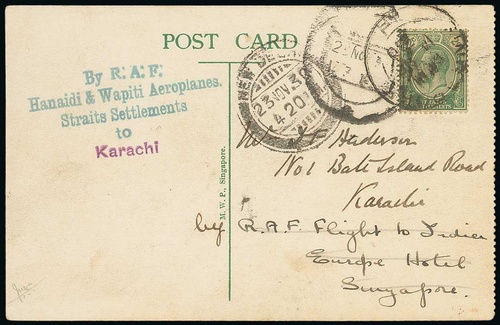 POST CARD
By R. A. F.
Hanaidi & Wapiti Aeroplanes.
Straits Settlements
to
Karachi
23 NOV. 30
4.20
2 NO
M. W. P., Singapore.
Anderson
No 1 Bath Island Road
Karachi
by R.A.F. Flight to India
Europe Hotel
Singapore.